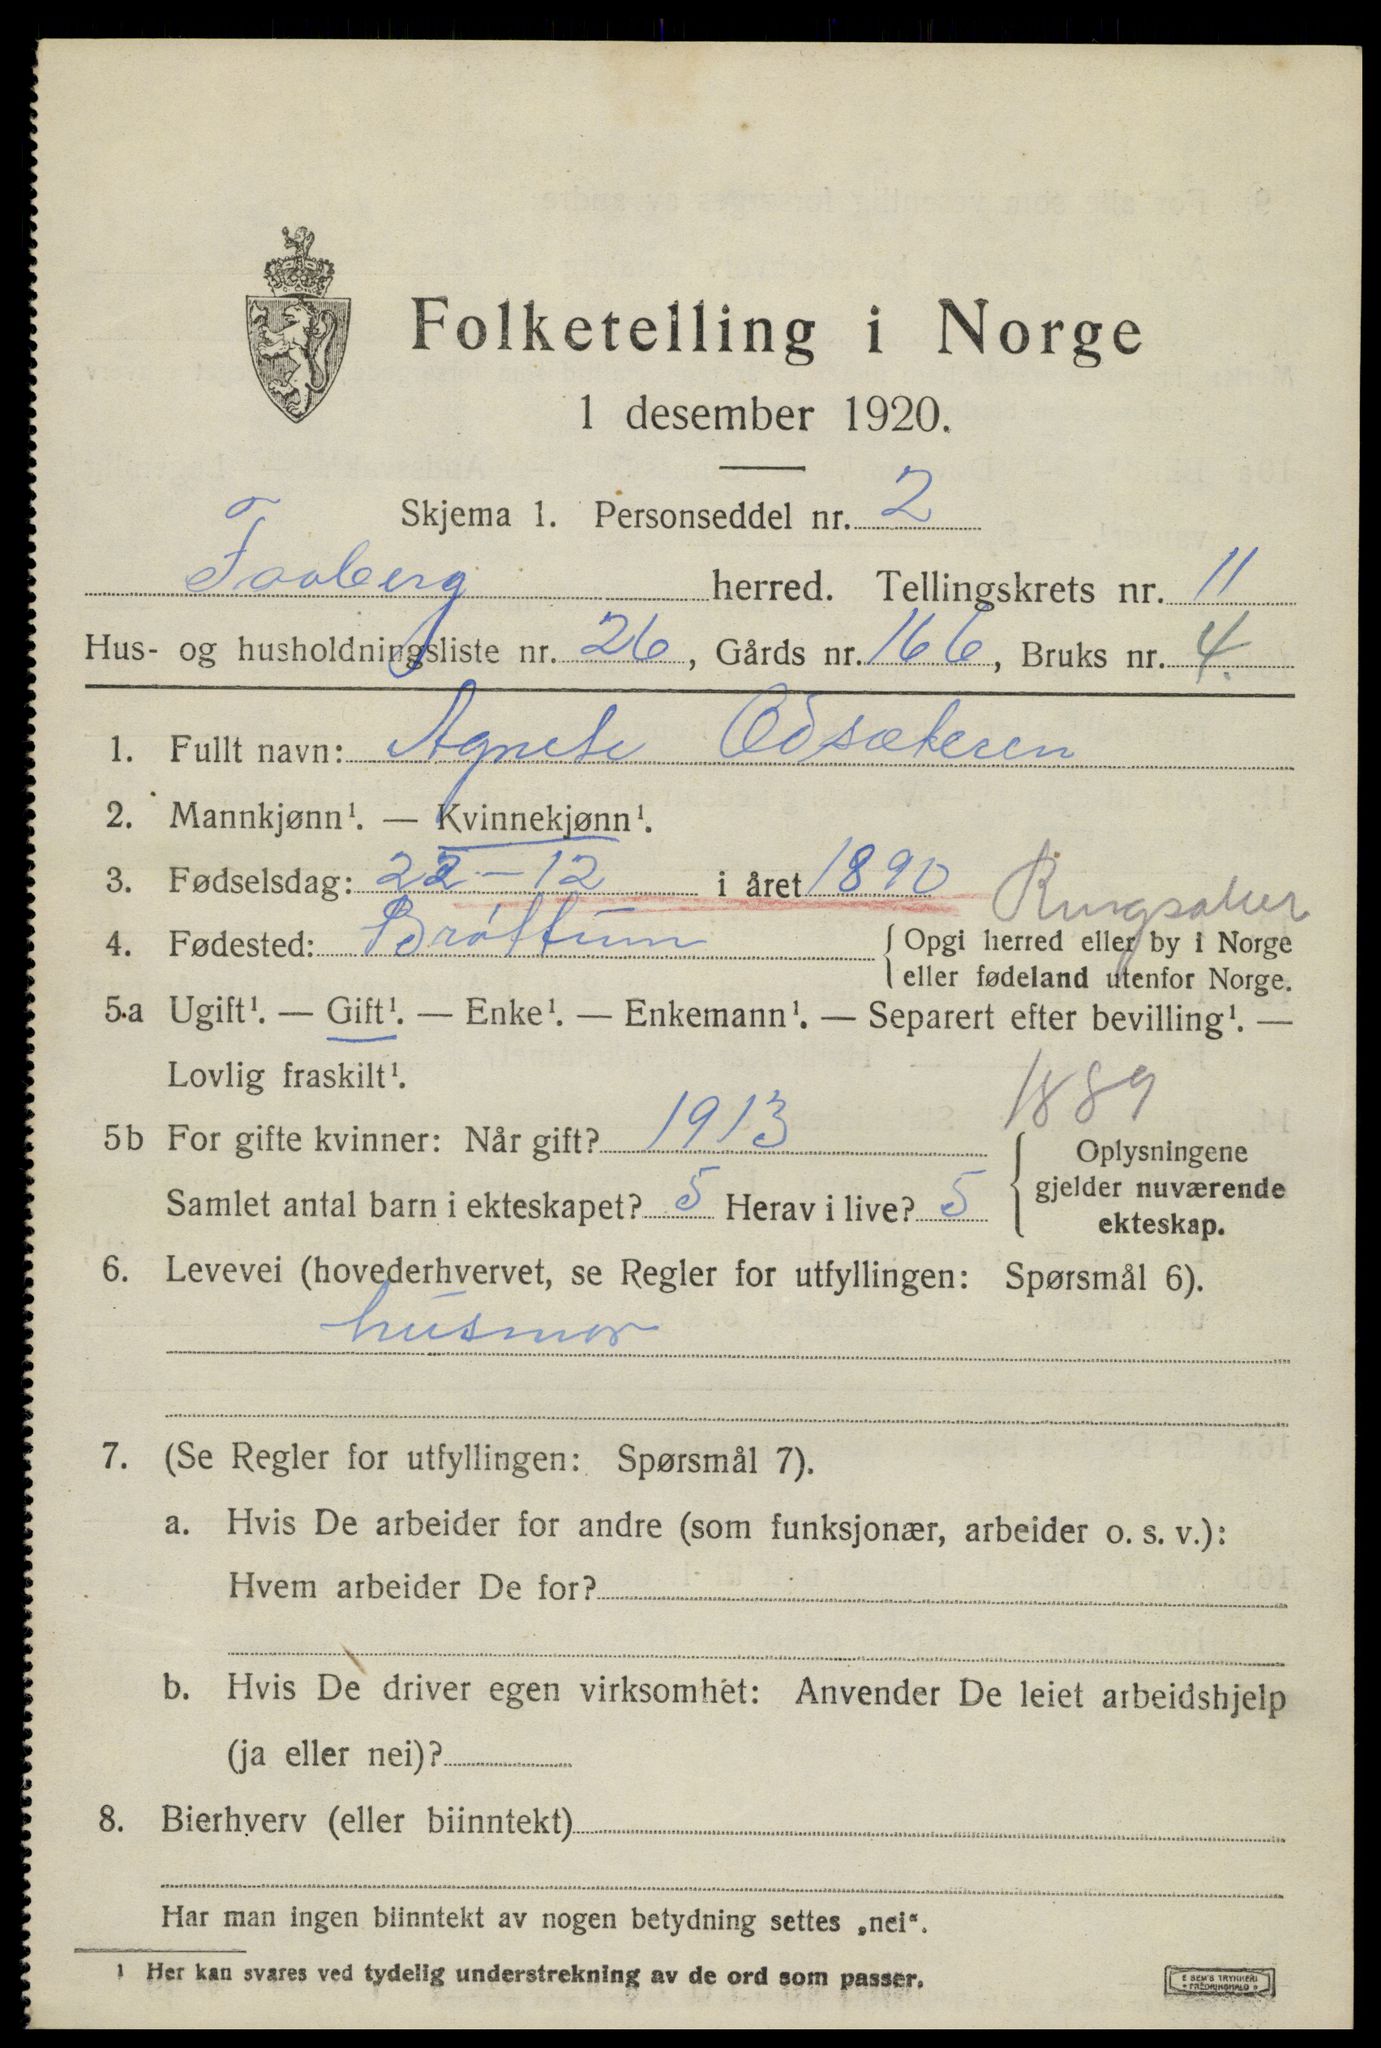 Folketelling i Norge
1 desember 1920.
Skjema 1. Personseddel nr. 2
Faaberg herred. Tellingskrets nr. 11
Hus- og husholdningsliste nr. 26, Gårds nr. 166, Bruks nr. 4.
1. Fullt navn: Agnete Odsæteren
2. Mannkjønn¹. — Kvinnekjønn¹.
3. Fødselsdag: 22-12 i året 1890
Ringsaker
4. Fødested: Brøttum { Opgi herred eller by i Norge
eller fødeland utenfor Norge.
5.a Ugift¹. — Gift¹. — Enke¹. — Enkemann¹. — Separert efter bevilling¹. —
Lovlig fraskilt¹.
1889
5b For gifte kvinner: Når gift? 1913
Samlet antal barn i ekteskapet? 5 Herav i live? 5
{ Oplysningene
gjelder nuværende
ekteskap.
6. Levevei (hovederhvervet, se Regler for utfyllingen: Spørsmål 6).
husmor
7. (Se Regler for utfyllingen: Spørsmål 7).
a. Hvis De arbeider for andre (som funksjonær, arbeider o. s. v.):
Hvem arbeider De for?
b. Hvis De driver egen virksomhet: Anvender De leiet arbeidshjelp
(ja eller nei)?
8. Bierhverv (eller biinntekt)
Har man ingen biinntekt av nogen betydning settes „nei“.
¹ Her kan svares ved tydelig understrekning av de ord som passer.
E SEM'S TRYKKERI
• FREDRIKSHALD •